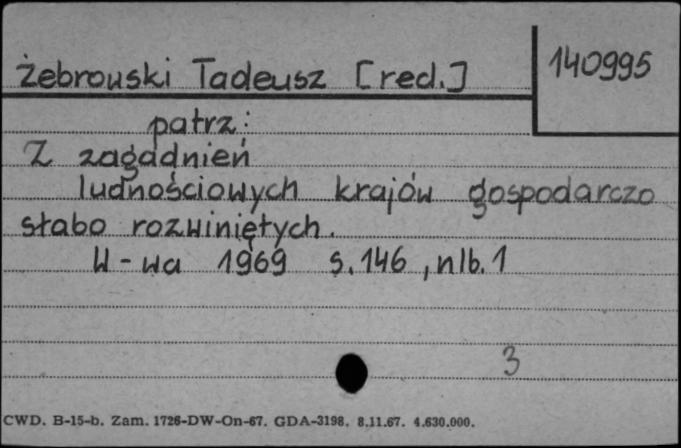 Żebrowski Tadeusz [red.]
140995
patrz:
Z zagadnień
ludnościowych krajów gospodarczo
słabo rozwiniętych.
W-wa 1969 s.146, nlb.1
3
CWD. B-15-b. Zam. 1726-DW-On-67. GDA-3198. 8.11.67. 4.630.000.